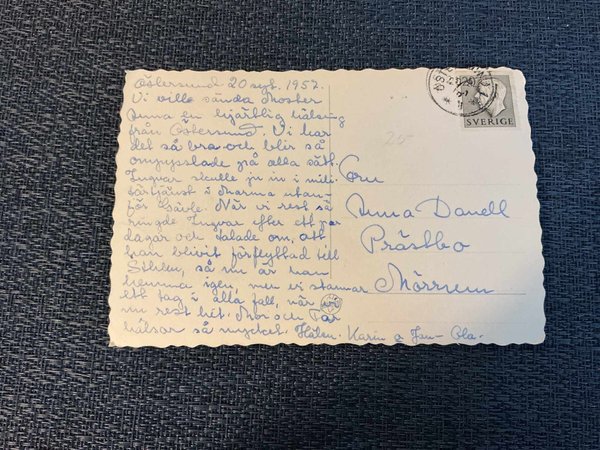 Östersund 20 sept. 1957.
Vi ville sända Moster
Anna en hjärtlig hälsning
från Östersund. Vi har
det så bra och blir så
ompysslade på alla sätt.
Ingvar skulle ju in i mili-
tärtjänst i utan-
för Gävle. När vi rest så
ringde Ingvar efter ett par
dagar och talade om, att
han blivit förflyttad till
så nu är han
hemma igen, men vi stannar
ett tag i alla fall, när vi
nu rest hit. Mor och Far
hälsar så mycket. Karin o Jan-Ola.
Fru
Anna Danell
Prästbo
Mörrum
ÖSTERSUND
SVERIGE
25